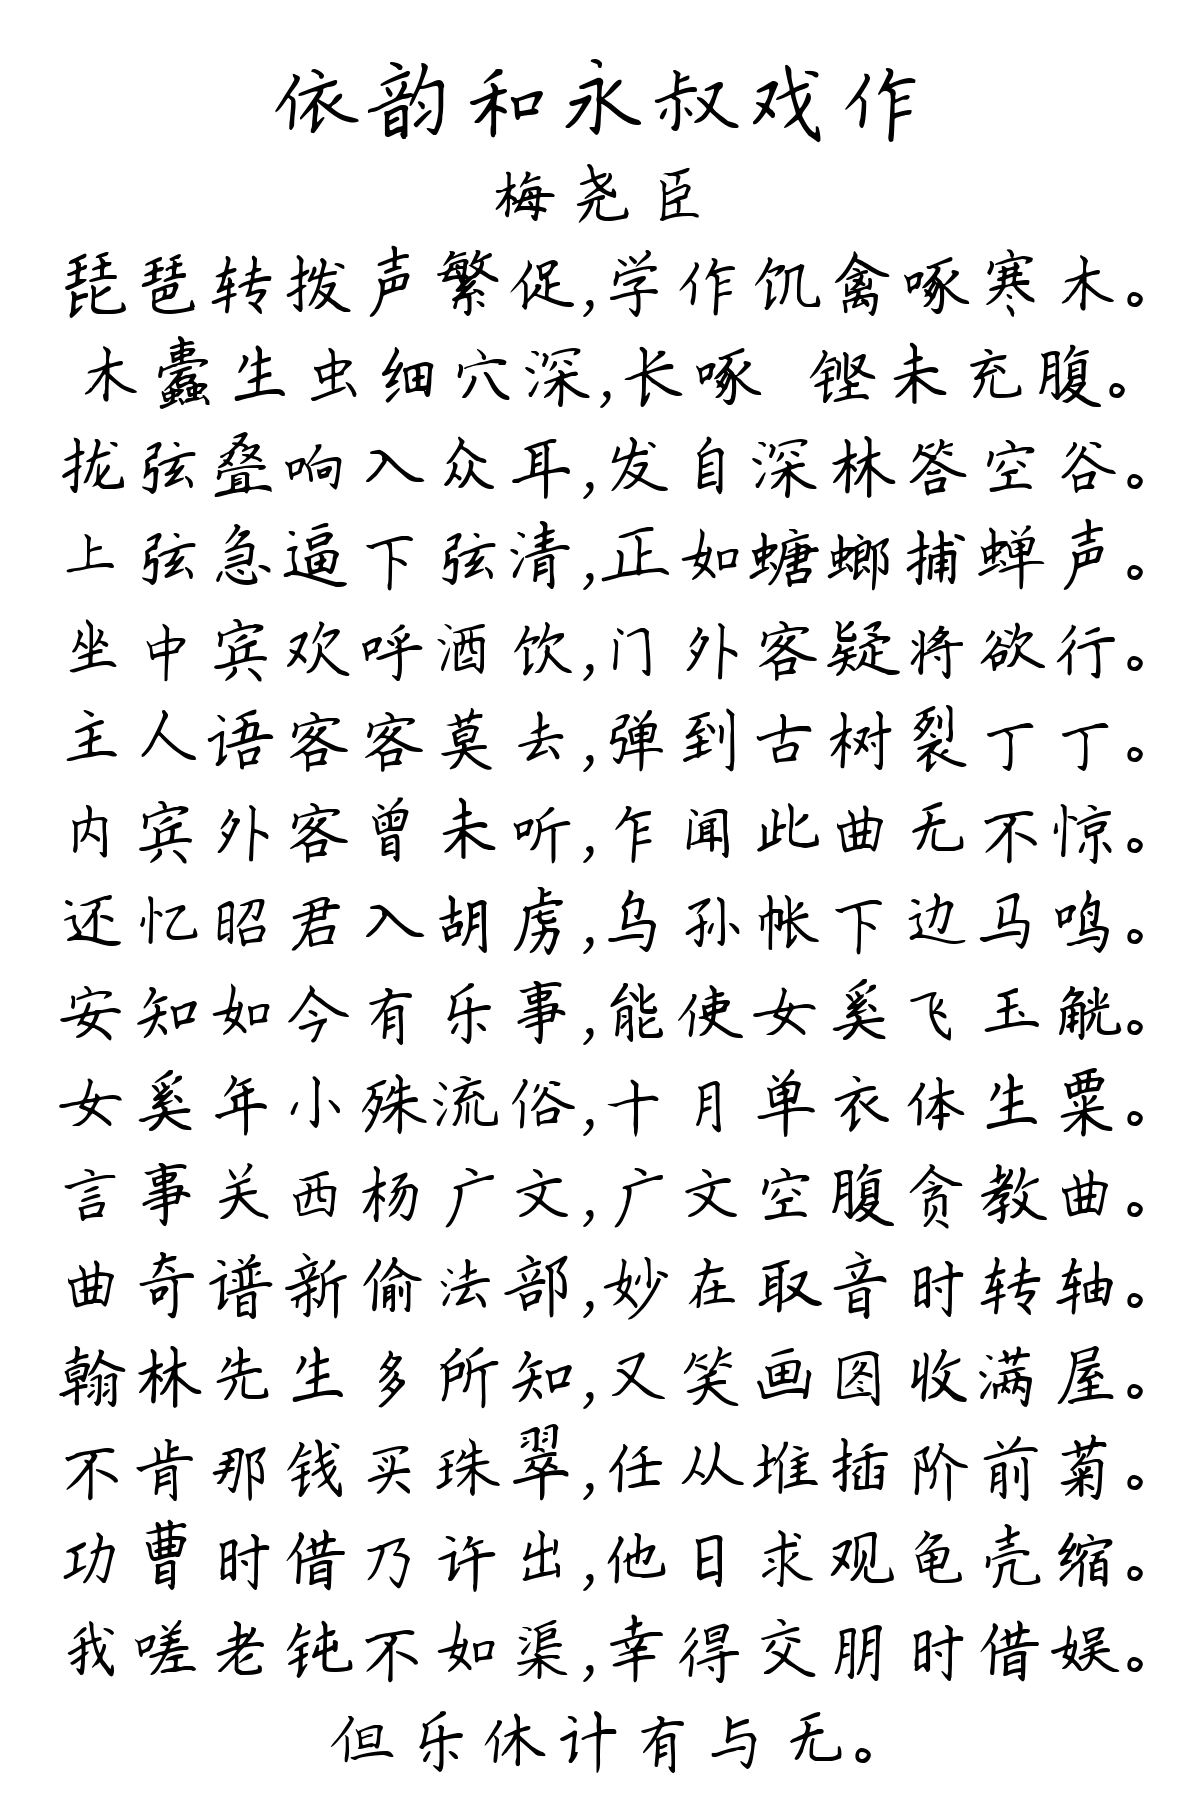 依韵和永叔戏作
梅尧臣
琵琶转拨声繁促,学作饥禽啄寒木。
木蠹生虫细穴深,长啄 铿未充腹。
拢弦叠响入众耳,发自深林答空谷。
上弦急逼下弦清,正如螗螂捕蝉声。
坐中宾欢呼酒饮,门外客疑将欲行。
主人语客客莫去,弹到古树裂丁丁。
内宾外客曾未听,乍闻此曲无不惊。
还忆昭君入胡虏,乌孙帐下边马鸣。
安知如今有乐事,能使女奚飞玉觥。
女奚年小殊流俗,十月单衣体生粟。
言事关西杨广文,广文空腹贪教曲。
曲奇谱新偷法部,妙在取音时转轴。
翰林先生多所知,又笑画图收满屋。
不肯那钱买珠翠,任从堆插阶前菊。
功曹时借乃许出,他日求观龟壳缩。
我嗟老钝不如渠,幸得交朋时借娱。
但乐休计有与无。